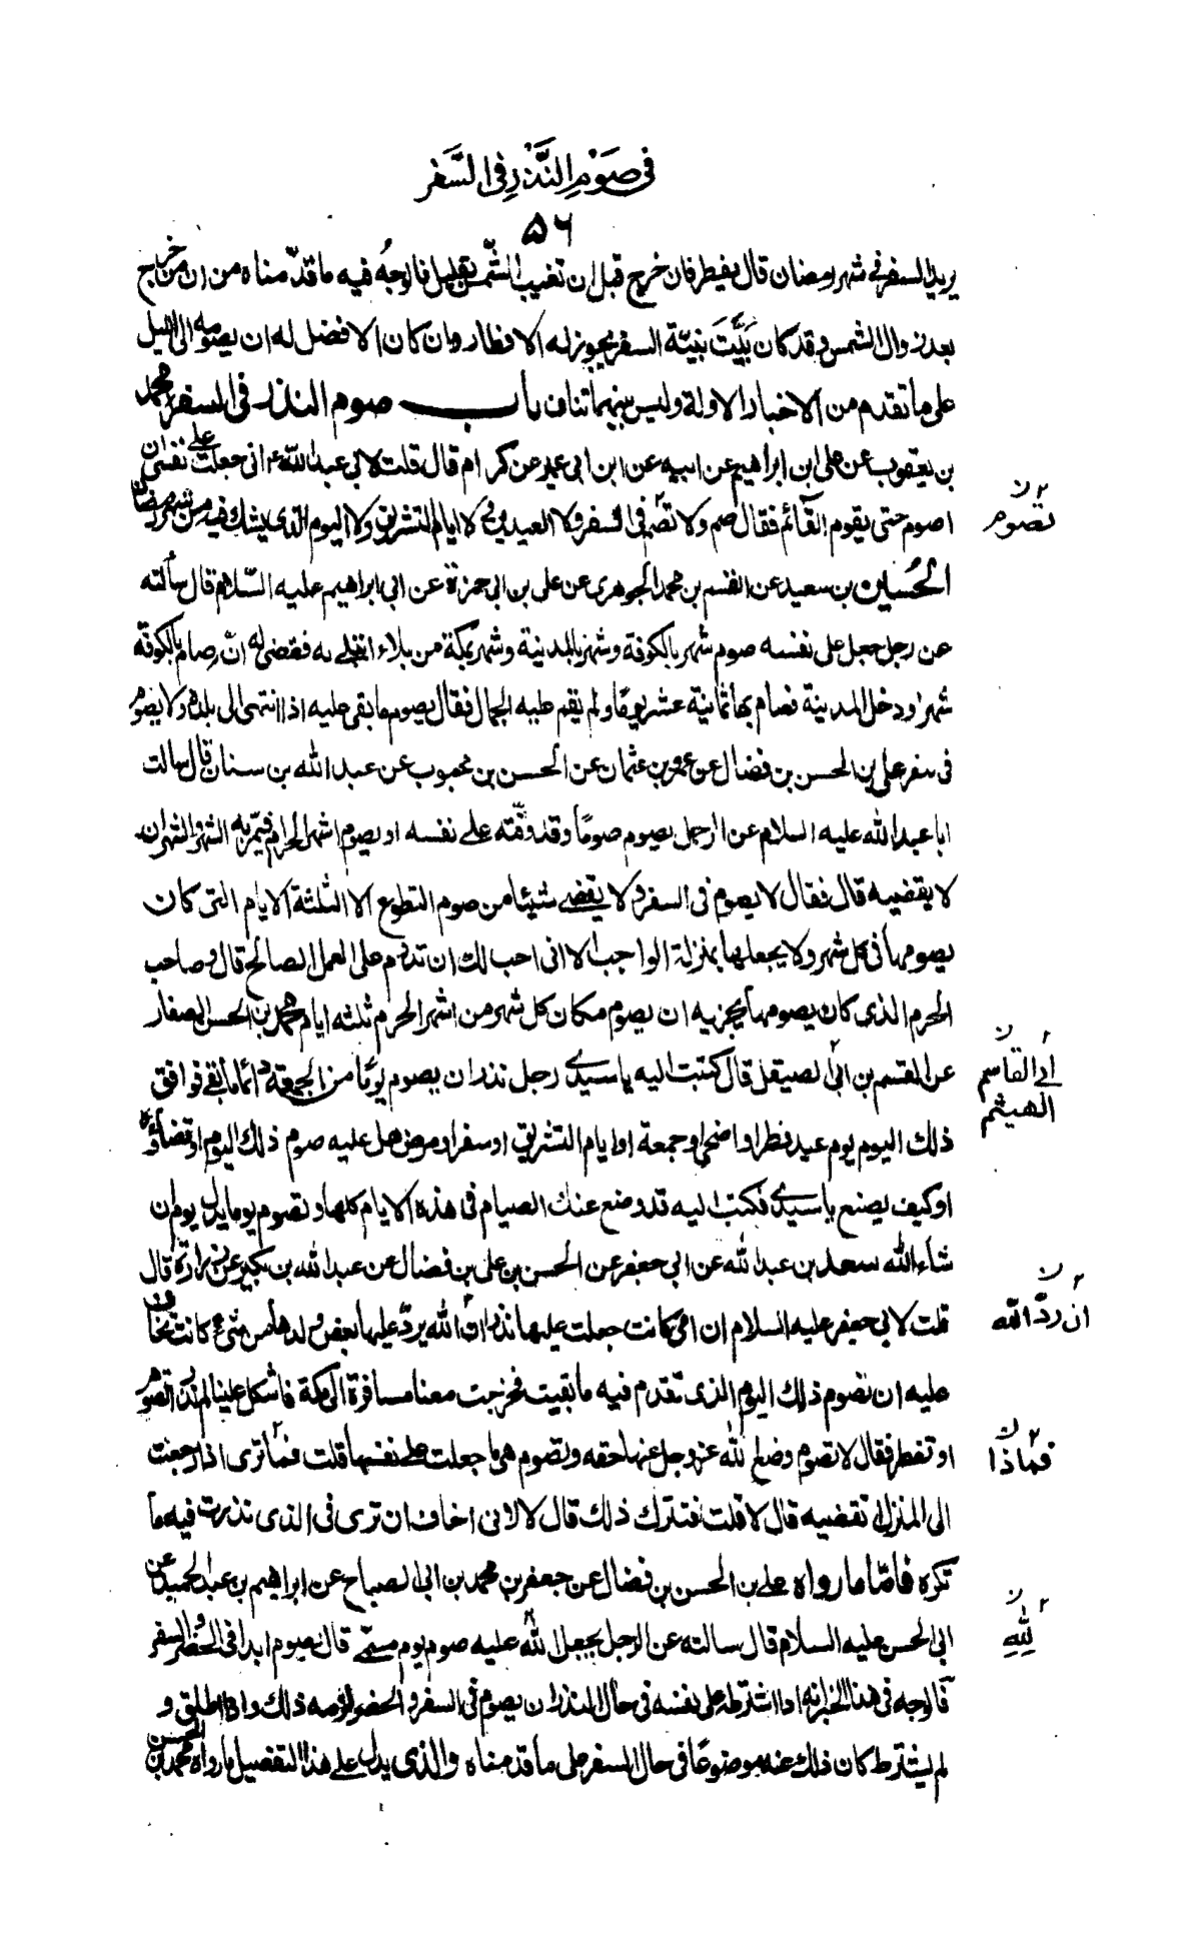 في صَوْمِ النَّذْرِ في السَّفَر
۵۶
يريد السفر في شهر رمضان قال يفطر فان خرج قبل ان تغيب الشّمس بقليل فالوجهُ فيه ما قدّمناه من ان من خرج
بعد زوال الشمس وقد كان بَيَّتَ بنيّة السفر يجوز له الافطار وان كان الافضل له ان يصومه الى الليل
على ما تقدم من الاخبار الاولة وليس بينهما تناف باب صوم النذر في السفر محمد
بن يعقوب عن على ابن ابراهيم عن ابيه عن ابن ابي عمير عن كرام قال قلت لابي عبد اللهؑ اني جعلت على نفسي ان
اصوم حتى يقوم القآئم فقال صم ولا تصم في السفر ولا العيدين ولا ايام التشريق ولا اليوم الذى يشك فيه من شهر رمضان
تصوم
الحُسين بن سعيد عن القسم بن محمد الجوهرى عن على بن ابى حمزة عن ابى ابراهيم عليه السّلام قال سألته
عن رجل جعل على نفسه صوم شهر بالكوفة وشهر بالمدينة وشهر بمكة من بلاء ابتلى به فقضى له انّه صام بالكوفة
شهرًا ودخل المدينة فصام بها ثمانية عشر يومًا ولم يقم عليه الجمال فقال يصوم ما بقى عليه اذا انتهى الى بلده ولا يصوم
في سفر على بن الحسن بن فضال عن عمرو بن عثمان عن الحسن بن محبوب عن عبد الله بن سنان قال سالت
ابا عبد الله عليه السلام عن الرجل يصوم صومًا وقد وقّته على نفسه او يصوم اشهر الحرام فيمرّ به الشهر والشهران
لا يقضيه قال فقال لا يصوم في السفر ولا يقضى شيئا من صوم التطوع الا الثلثة الايام التى كان
يصومها في كل شهر ولا يجعلها بمنزلة الواجب الا انى احب لك ان تدوم على العمل الصالح قال وصاحب
الحرم الذى كان يصومها يجزيه ان يصوم مكان كل شهر من اشهر الحرم ثلثه ايام محمد بن الحسن الصفار
عن القسم بن ابى الصيقل قال كتبت اليه يا سيدى رجل نذر ان يصوم يومًا من الجمعة دائما ما بقى فوافق
ابي القاسم
الهيثم
ذلك اليوم يوم عيد فطر او اضحى او جمعة او ايام التشريق او سفر او مرض هل عليه صوم ذلك اليوم او قضاؤه
او كيف يصنع يا سيدى فكتب اليه قد وضع عنك الصيام في هذه الايام كلها وتصوم يوما بدل يوم ان
شاء الله سعد بن عبد الله عن ابى جعفر عن الحسن بن على بن فضال عن عبد الله بن بكير عن زرارة قال
قلت لابى جعفر عليه السلام ان امى كانت جعلت عليها نذرا انّ الله يردّ عليها بعض ولدها من شىء كانت تخاف
ان ردّ الله
عليه ان تصوم ذلك اليوم الذى تقدم فيه ما بقيت فخرجت معنا مسافرة الى مكة فاشكل علينا لم ندر اتصوم
او تفطر فقال لا تصوم وضع الله عزوجل عنها حقه وتصوم هى ما جعلت على نفسها قلت فما ترى اذا رجعت
فماذا
الى المنزل تقضيه قال لا قلت فتترك ذلك قال لا لانى اخاف ان ترى في الذى نذرت فيه ما
تكره فامّا ما رواه على بن الحسن بن فضال عن جعفر بن محمد بن ابى الصباح عن ابراهيم بن عبد الحميد عن
ابى الحسن عليه السلام قال سالته عن الرجل يجعل لله عليه صوم يوم مسمّى قال يصوم ابدا في الحضر والسفر
لِلّهِ
فالوجه في هذا الخبر انه اذا اشترط على نفسه في حال النذر ان يصوم في السفر والحضر لزمه ذلك واذا اطلق و
لم يشترط كان ذلك عنه موضوعًا في حال السفر على ما قدمناه والذى يدل على هذا التفصيل ما رواه محمد بن الحسن